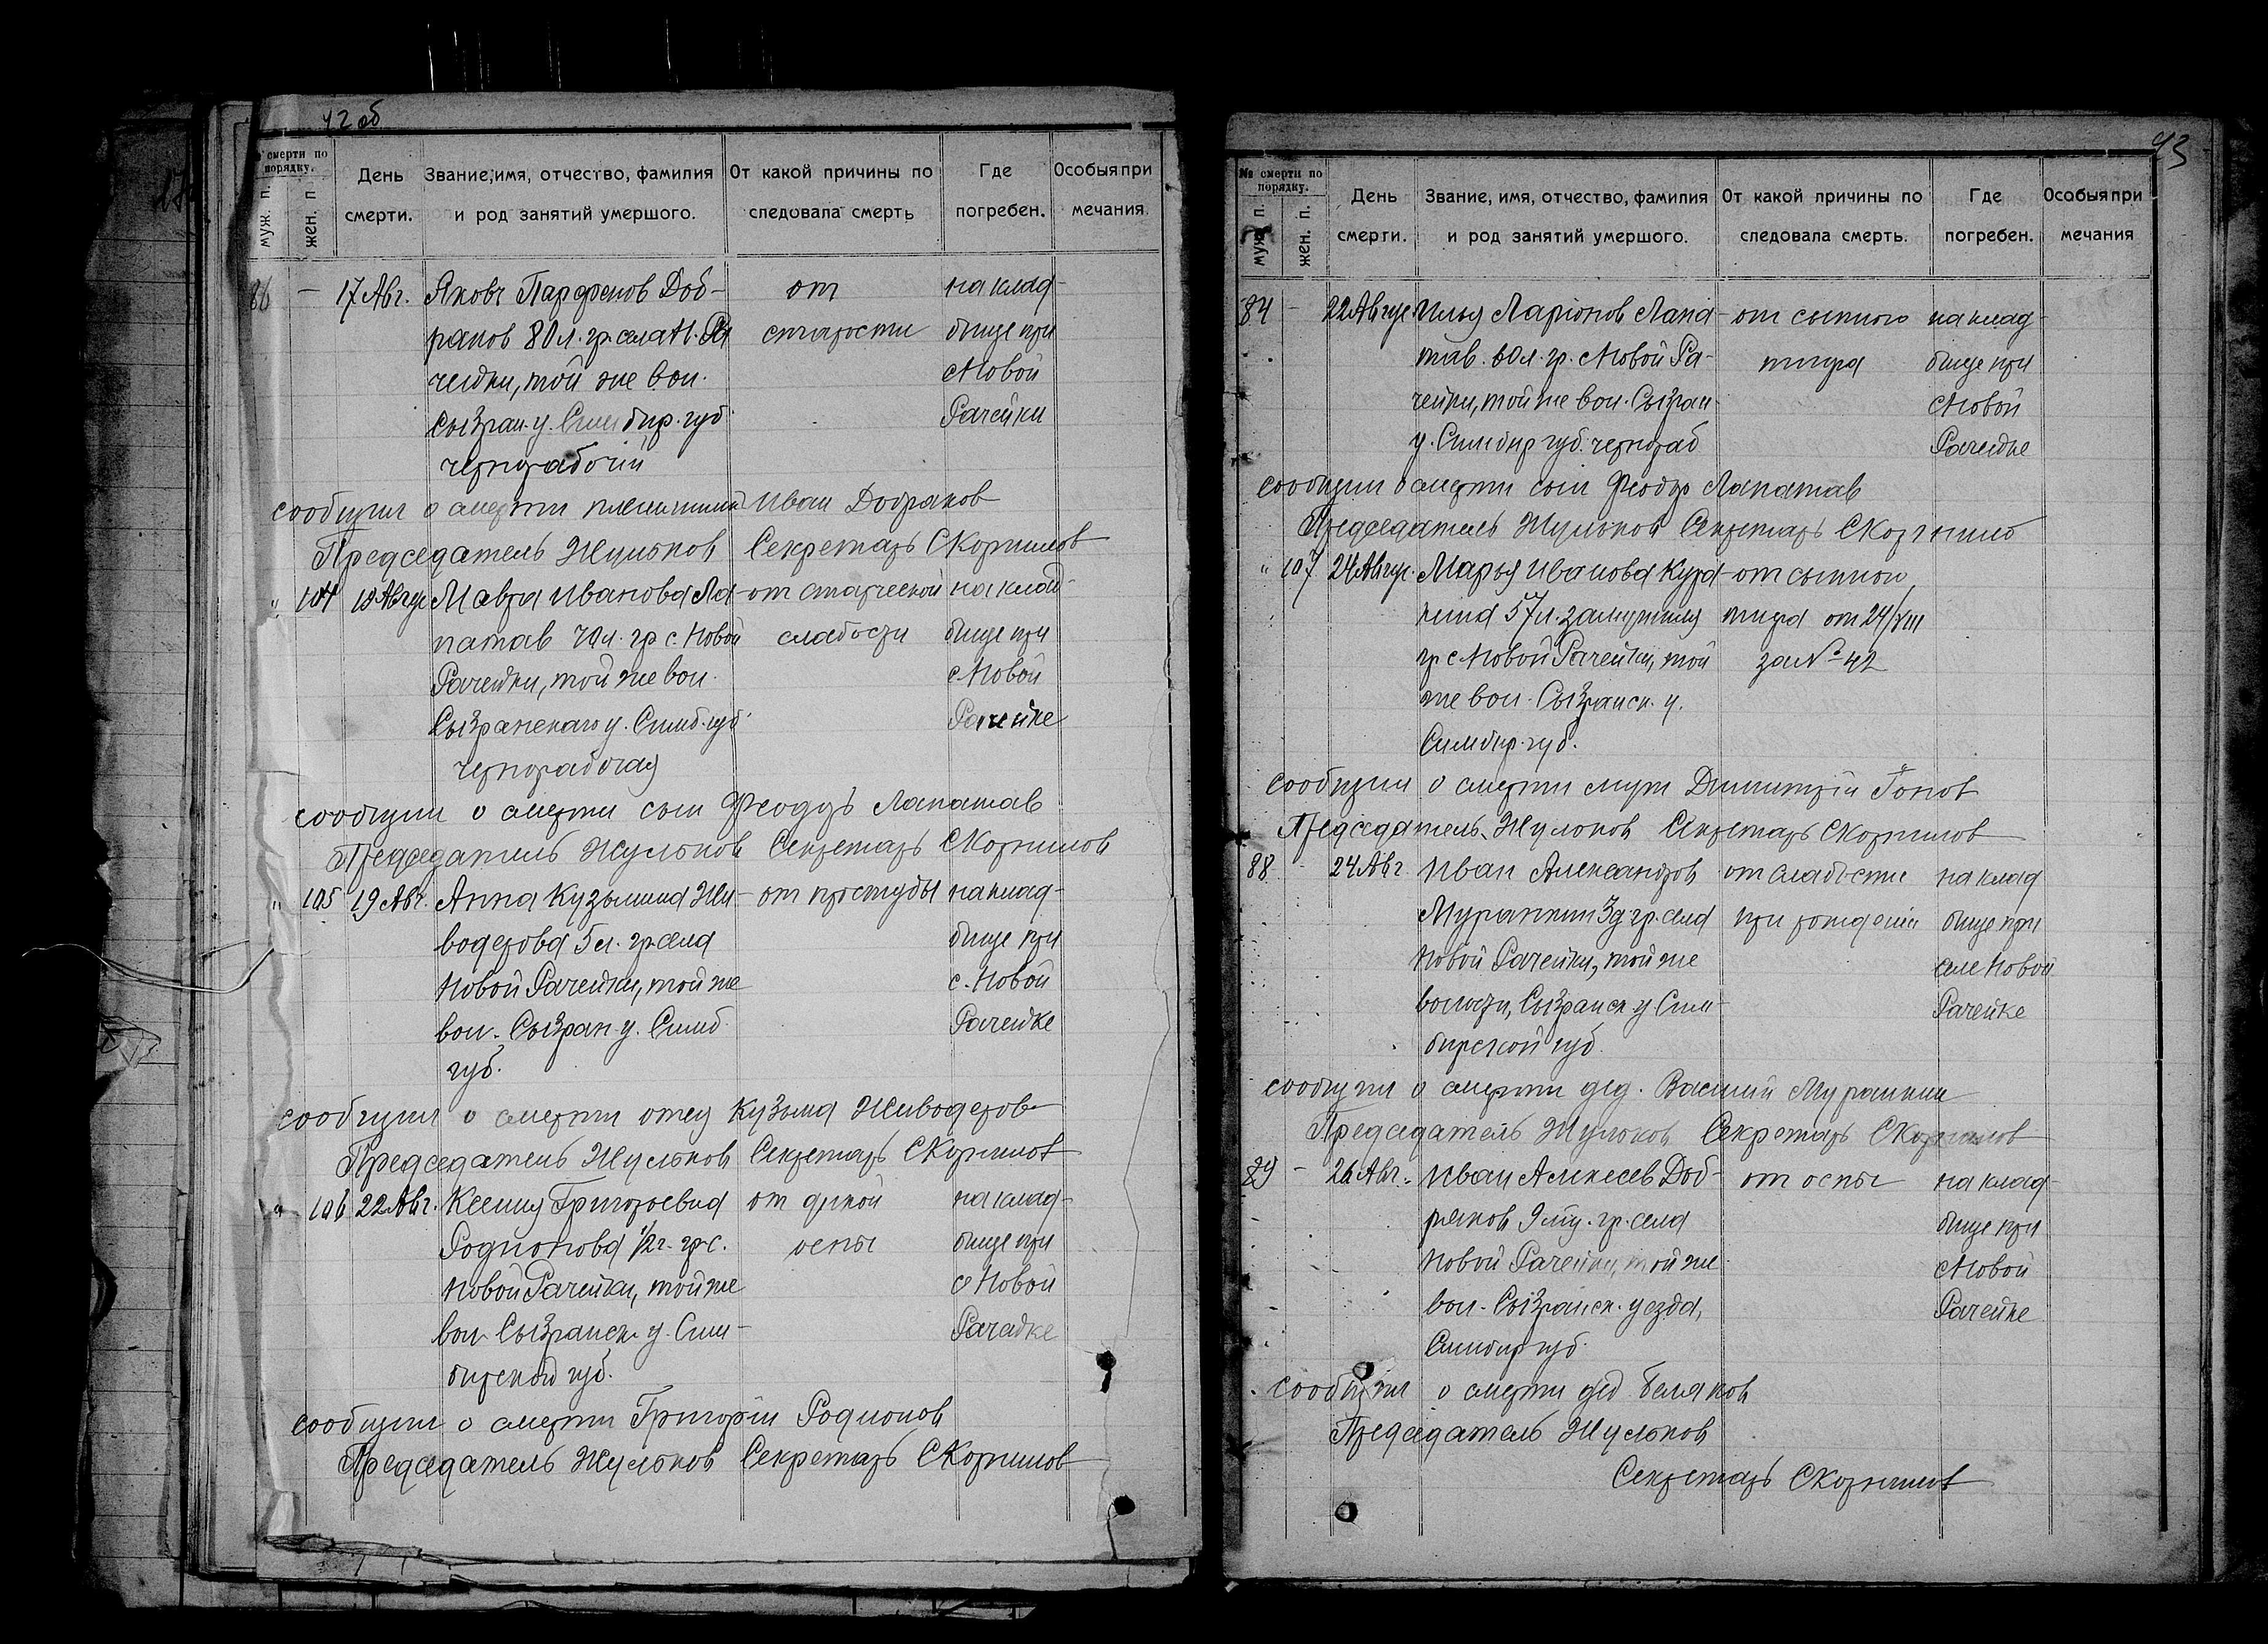 42 об
№ смерти по порядку.
муж. п.
жен. п.
День смерти.
Звание, имя, отчество, фамилия и род занятий умершого.
От какой причины последовала смерть
Где погребен.
Особыя примечания.
86 — 17 Авг. Яковъ Парфенов Доб- от на клад-
ряков 80 л. гр. села Н. Ра старости бище при
чейки, той же вол. с Новой
Сызран. у. Симбир. губ. Рачейки
чернорабочий
сообщил о смерти племянник Иван Добряков
Председатель Жульков Секретарь С Корнилов
" 104 18 Авгус Мавра Иванова Ла- от старческой на клад-
патав 70 л. гр с. Новой слабости бище при
Рачейки, той же вол. с Новой
Сызранскаго у. Симб. губ. Рачейке
чернорабочая
сообщил о смерти сын Феодоръ Лапатав
Председатель Жульков Секретарь С Корнилов
" 105 19 Авг. Анна Кузьмина Жи- от простуды на клад-
водерова 5 л. гр. села бище при
Новой Рачейки, той же с. Новой
вол. Сызран. у. Симб. Рачейке
губ.
сообщил о смерти отец Кузьма Живодеров
Председатель Жульков Секретарь С Корнилов
" 106 22 Авг. Ксения Григорьевна от дикой на клад-
Родионова 1/2 г. гр. с. оспы бище при
Новой Рачейки, той же с Новой
вол. Сызранск. у. Сим- Рачейке
бирской губ.
сообщил о смерти Григорiй Родионов
Председатель Жульков Секретарь С Корнилов
43
№ смерти по порядку.
муж. п.
жен. п.
День смерти.
Звание, имя, отчество, фамилия и род занятий умершого.
От какой причины последовала смерть.
Где погребен.
Особыя примечания
84 — 22 Авгус Илья Ларiонов Лапа- от сыпного на клад-
тав. 60 л. гр. с Новой Ра- тифа бище при
чейки, той же вол. Сызран с Новой
у. Симбир губ. чернораб Рачейке
сообщил о смерти сын Феодор Лапатав
Председатель Жульков Секретарь С Корнилов
" 107 24 Авгус. Марья Иванова Кура- от сыпного
кина 57 л. замужняя тифа от 24/VIII
гр с Новой Рачейки, той за № 42
же вол. Сызранск. у.
Симбир. губ.
сообщил о смерти муж Димитрiй
Председатель Жульков Секретарь С Корнилов
88 - 24 Авг Иван Александров от слабости на клад
Муранкин 3 д гр. села при рождении бище при
Новой Рачейки, той же селе Новой
волости, Сызранск у Сим- Рачейке
бирской губ.
сообщил о смерти дед. Василий Муранкин
Председатель Жульков Секретарь С Корнилов
89 - 26 Авг. Иван Алексеев Доб- от оспы на клад-
ряков 9 гр. села бище при
Новой Рачейки, той же с Новой
вол. Сызранск. уезда, Рачейке
Симбир губ.
сообщил о смерти дед Беляков
Председатель Жульков
Секретарь С Корнилов